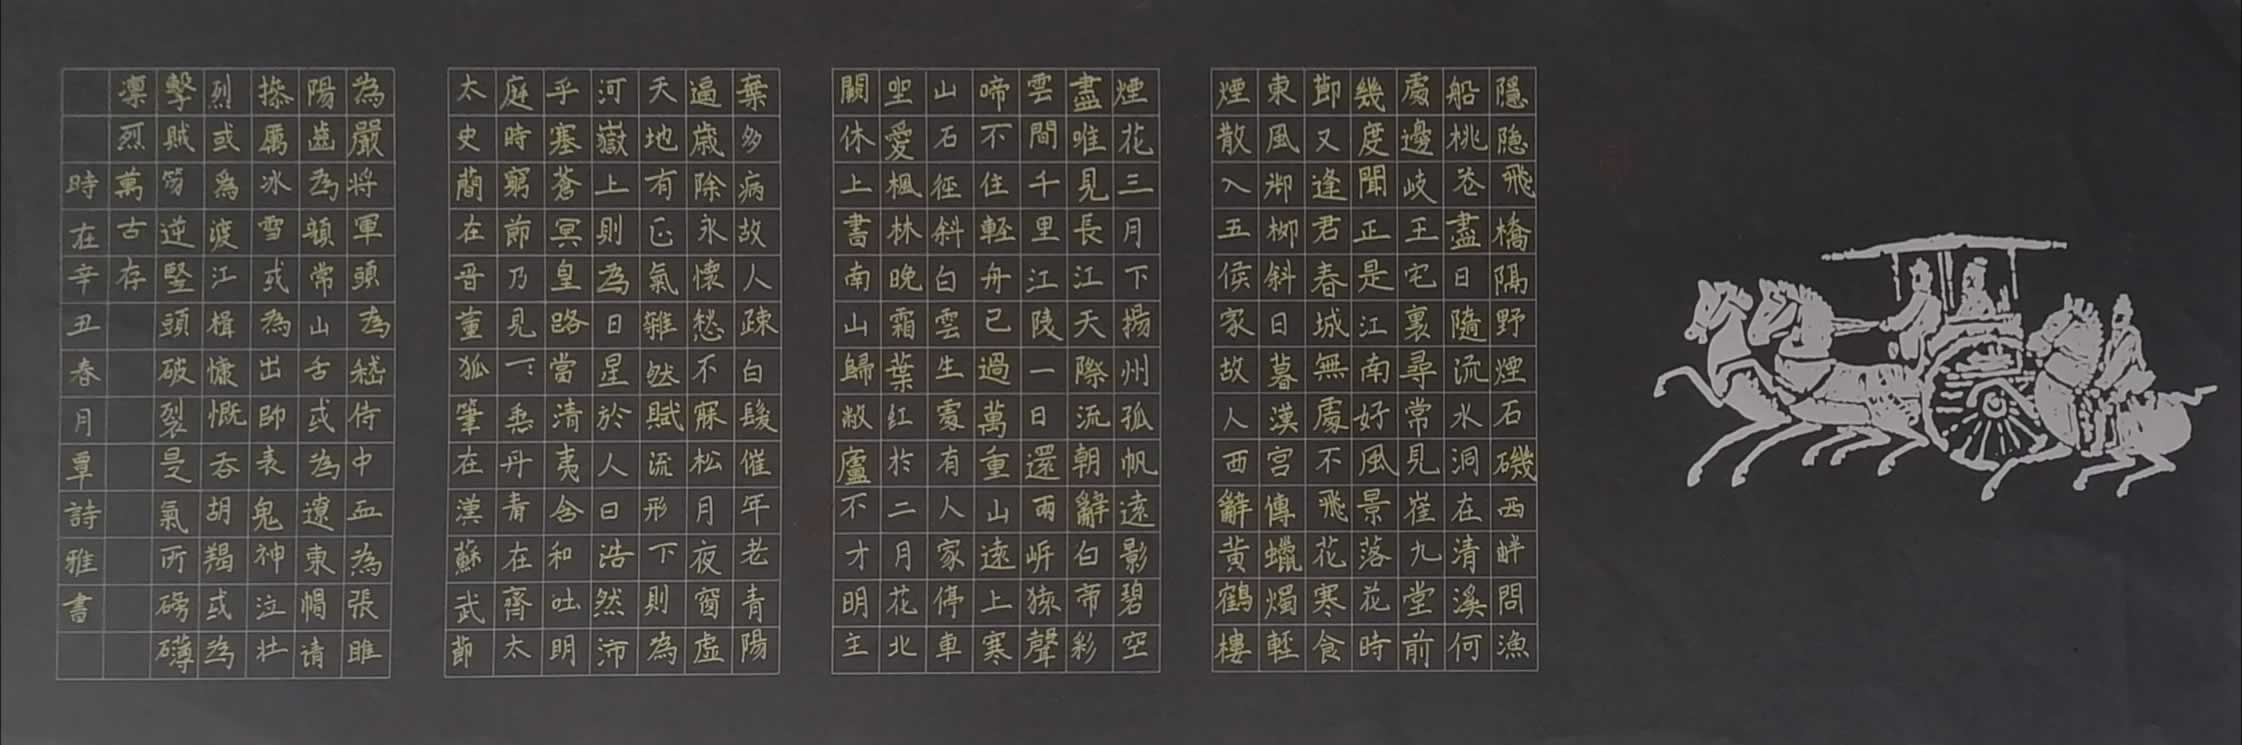 隱隐飛橋隔野煙石磯西畔問漁
船桃花盡日隨流水洞在清溪何
處邊岐王宅裏尋常見崔九堂前
幾度聞正是江南好風景落花時
節又逢君春城無處不飛花寒食
東風御柳斜日暮漢宮傳蠟燭輕
煙散入五侯家故人西辭黃鶴樓
煙花三月下揚州孤帆遠影碧空
盡唯見長江天際流朝辭白帝彩
雲間千里江陵一日還兩岍猿聲
啼不住輕舟已過萬重山遠上寒
山石径斜白雲生處有人家停車
坐愛楓林晚霜葉红於二月花北
闕休上書南山歸敝廬不才明主
棄多病故人疎白髮催年老青陽
逼歲除永懷愁不寐松月夜窗虛
天地有正氣雜然賦流形下則為
河嶽上則為日星於人曰浩然沛
乎塞蒼冥皇路當清夷含和吐明
庭時窮節乃見一〻垂丹青在齊太
太史簡在晉董狐筆在漢蘇武節
為嚴将軍頭為嵇侍中血為張睢
陽齒為顏常山舌或為遼東帽请
操厲冰雪或為出師表鬼神泣壯
烈或為渡江楫慷慨吞胡羯或為
擊賊笏逆豎頭破裂是氣所磅礴
凛烈萬古存
時在辛丑春月覃詩雅書